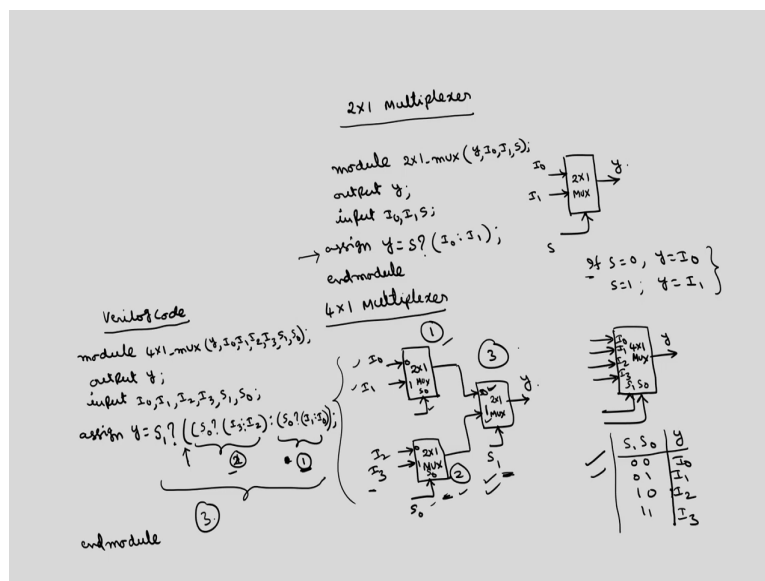 2x1 Multiplexer
module 2x1-mux(y,I0,I1,S);
output y;
input I0,I1,S;
→ assign y=S?(I0:I1);
endmodule
I0
I1
2x1
MUX
y.
S
If S=0, y=I0
S=1; y=I1
4x1 Multiplexer
Verilog Code
module 4x1-mux(y,I0,I1,I2,I3,S1,S0);
output y;
input I0,I1,I2,I3,S1,S0;
assign y=S1?([S0?(I3:I2):(S0?(I1:I0));
2
1
3
endmodule
1
I0
I1
0
1
2x1
MUX
S0
I2
I3
0
1
2x1
MUX
S0
2
S0
3
0
1
2x1
MUX
y.
S1
I0
I1
I2
I3
4x1
MUX
S1 S0
y
S1 S0 y
0 0 I0
0 1 I1
1 0 I2
1 1 I3